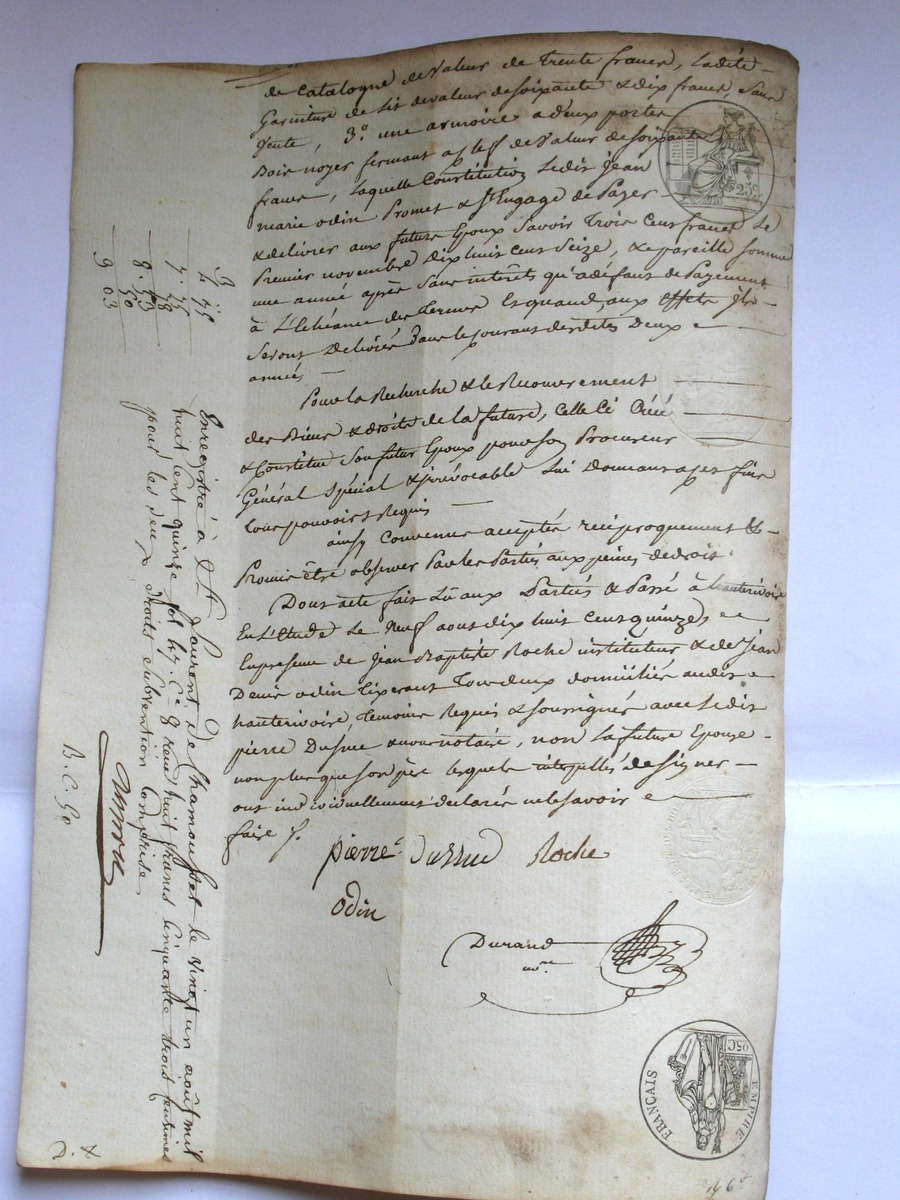 de Catalogne de valeur de trente francs, ladite
Garniture de lit de valeur de soixante & dix francs, sans
vente, 3.° une armoire a deux portes
Bois noyer fermant a clef de valeur de soixante
francs, laquelle Constitution ledit jean
marie odin Promet & S'Engage de Payer
& delivrer aux futurs Epoux Savoir Trois Cens francs Le
Premier novembre dix huit cens Seize, & pareille Somme
une année après Sans intérêts qu'a défaut de Payement
à L'Echéance des termes Et quand aux effets ils
Seront Délivrés dans le courant desdites Deux
années
Pour la Recherche & le Recouvrement
des Biens & droits de la future, Celle Ci Créé
& Constitue Son futur Epoux pour son Procureur
Général Spécial & irrévocable Lui Donnant a ces fins
tous pouvoirs Requis
ainsy Convenu accepté réciproquement &
Promis être observer Par les Parties aux peines de droit.
Dont acte fait Lû aux Parties & Passé à hauterivoire
En L'Etude Le Neuf aout dix huit Cens quinze,
En presence de Jean Baptiste Roche instituteur & de Jean
Denis odin Tixerant Tous deux domiciliés audit
hauterivoire, temoins Requis & soussignés avec ledit
pierre Dussud & nous notaire, non la future Epouse
non plus que son père lesquels interpellés de Signer
ont individuellement declarés ne le Savoir
faire /.
pierre Dussud Roche
Odin
Durand
no.re
Enregistré à St Laurent de Chamousset le vingt un août mil
huit cent quinze fol 47. C.e 8 reçu huit francs Cinquante trois centimes
pour les deux droits subvention Comprise
B. C. 50
8. 53
50
9 03
25c
EMPIRE
FRANCAIS
25C